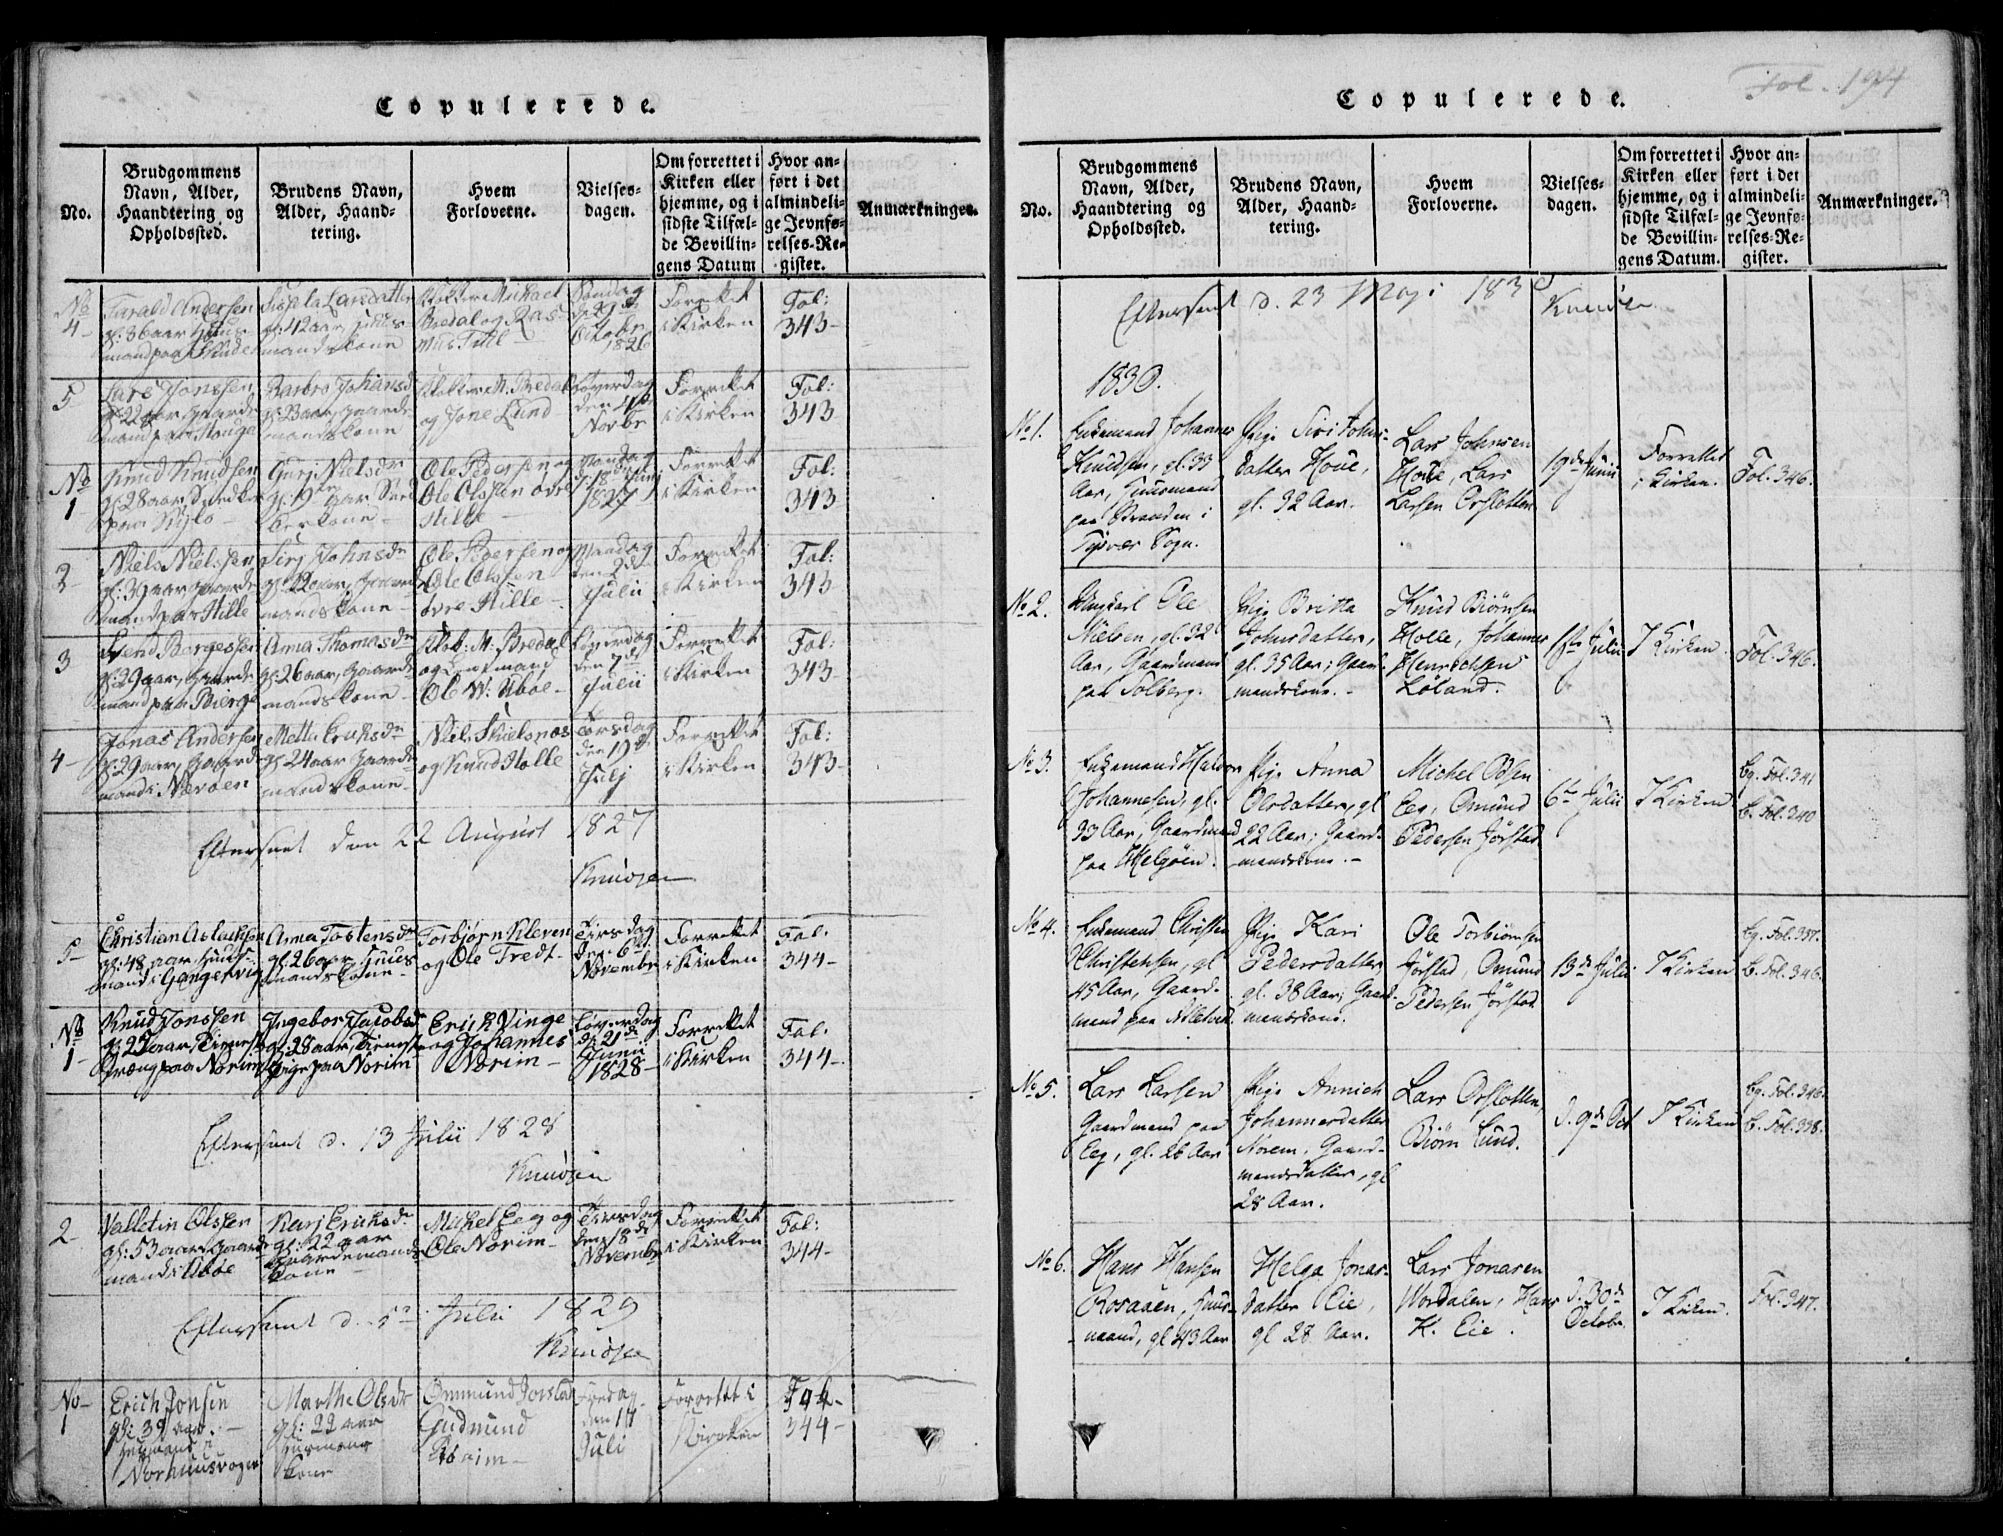 Copulerede.
No.
Brudgommens
Navn, Alder,
Haandtering og
Opholdssted.
Brudens Navn,
Alder, Haand-
tering.
Hvem
Forloverne.
Vielses-
dagen.
Om forrettet i
Kirken eller
hjemme, og i
sidste Tilfæl-
de Bevillin-
gens Datum
Hvor an-
ført i det
almindeli-
ge Jevnfø-
relses-Re-
gister.
Anmærkninger.
No
4
Tarald Andersen
gl: 36 aar Huus
mand paa
Larsdatter
gl: 42 aar Huus
mandskone
Klokker Michael
Bredal og Ras-
mus
Søndag
den 29de
Octobr
1826
Forrettet
i Kirken
Fol:
343
5
Lars Jonssen
gl: 22 aar, Gaarde
mand paa
Barbro Johansd
gl: 23 aar, Gaarde
mandskone
Klokker M. Bredal
og Jone Lund
Løverdag
den
Novbr
Forrettet
i Kirken
Fol:
343
No
1
Knud Knudsen
gl: 28 aar, Snedker
paa
Gurj Nielsdr
gl: 19 aar Sned
kerkone
Ole Pedersen og
Ole Olssen øvre
Hille
Mandag
d: 18de Junj
1827
Forrettet
i Kirken
Fol:
343
2
Niels Nielssen
gl: 39 aar Gaarde
mand paa Hille
Sirj Johnsdr
gl: 22 aar, Gaarde
mandskone
Ole Pedersen og
Ole Olssen
øvre Hille
Mandag
den 2de
Julii
Forrettet
i Kirken
Fol:
343
3
Svend Børgessen
gl: 29 aar, Gaarde
mand paa Bierge
Anna Thomasdr
gl: 26 aar, Gaarde
mandskone
Klok. M. Bredal
og Lensmand
Ole W. Aböe
Løverdag
den 7de
Julii
Forrettet
i Kirken
Fol:
343
4
Jonas Andersen
gl: 29 aar, Gaarde
mand i Nærøen
Mette Erichsdr
gl: 24 aar Gaarde
mandskone
Niels Skielsnæs
og Knud Holle
Torsdag
den 19de
Julj
Forrettet
i Kirken
Fol:
343
Efterseet den 22 August 1827
Knudsen
5
Christian Aslachsen
gl: 48 aar, Huus
mand i Gangenvig
Anna Tostensdr
gl: 26 aar, Huus
mandskone
Torbjørn Kleven
og Ole Tredt
Tirsdag
den 6te
Novembr
Forrettet
i Kirken
Fol:
344
No
1
Knud Jonssen
gl: 22 aar, Tieneste
dræng paa Norim
Ingebor Jacobsd
gl: 28 aar, Tieneste
pige paa Norim
Erich Vinge
og Johannes
Norim
Løverdag
d: 21de
Junii
1828
Forrettet
i Kirken
Fol:
344
Efterseet d. 13 Julii 1828
Knudsen
2
Valletin Olssen
gl: 53 aar, Gaarde
mand i Aböe
Karj Erichsdr
gl: 22 aar
Gaardemands
kone
Michel Eeg og
Ole Norim
Tirsdag
den 18de
Novembr
Forrettet
i Kirken
Fol:
344
Efterseet d. 5te Julii 1829
Knudsen
No
1
Erich Jonsen
gl: 39 aar
Huusmand i
Norhuusvogen
Marthe Olsdr
gl: 22 aar
Huusmands
kone
Ommund Jorstad
Gudmund
Fredag
den 14
Juli
Forrettet i
Kirken
Fol:
344
Copulerede.
Fol. 194
No.
Brudgommens
Navn, Alder,
Haandtering og
Opholdssted.
Brudens Navn,
Alder, Haand-
tering.
Hvem
Forloverne.
Vielses-
dagen.
Om forrettet i
Kirken eller
hjemme, og i
sidste Tilfæl-
de Bevillin-
gens Datum.
Hvor an-
ført i det
almindeli-
ge Jevnfø-
relses-Re-
gister.
Anmærkninger.
Efterseet d. 23 Maji 1830 Knudsen
1830.
No 1.
Enkemand Johannes
Knudsen, gl. 33
Aar, Huusmand
paa Stranden i
Tysvær Sogn.
Pige Siri Johns-
datter Houe,
gl. 32 Aar.
Lars Johnsen
Houe, Lars
Larsen Orslotten
19de Junii
Forrettet
i Kirken.
Fol. 346.
No 2.
Ungkarl Ole
Nielsen, gl. 32
Aar, Gaardmand
paa Solberg.
Pige Britta
Johnsdatter,
gl. 35 Aar; Gaard-
mandskone.
Knud Biørnsen
Holle, Johannes
Henrichsen
Løland.
1ste Julii
I Kirken.
Fol. 346.
No 3.
Enkemand Halvor
Johannesen, gl.
33 Aar, Gaardmand
paa Helgøen.
Pige Anna
Olsdatter, gl
22 Aar; Gaard-
mandskone.
Michel Odsen
Eeg, Omund
Pedersen Jørstad
6te Julii
I Kirken
Bg. Fol. 341
B. Fol. 240
No 4.
Enkemand Christen
Christensen, gl
45 Aar, Gaard-
mand paa
Pige Kari
Pedersdatter
gl. 38 Aar; Gaard-
mandskone.
Ole Torbiørnsen
Jørstad, Omund
Pedersen Jørstad
13de Julii
I Kirken
Bg. Fol. 337.
B. Fol. 346.
No 5.
Lars Larsen
Gaardmand paa
Eeg, gl. 26 Aar
Pige Annich
Johannesdatter
Norem, Gaard-
mandsdatter, gl
28 Aar.
Lars Orslotten,
Biørn Lund.
d. 9de Oct
I Kirken
Bg. Fol. 346.
B. Fol. 338.
No 6.
Hans Hansen
Rosaaen, Huus-
mand, gl 43 Aar
Helga Jonas-
datter Eie,
gl 28 Aar.
Lars Jonasen
Wordalen, Hans
H. Eie.
d. 30de
Octobr.
I Kirken.
Fol. 347.